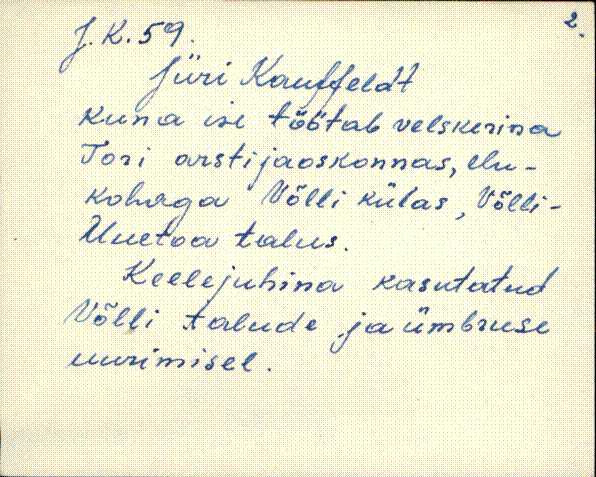 2.
J.K.59.
Jüri Kauffeldt
kuna ise töötab velskerina
Tori arstijaoskonnas, elu-
kohaga Võlli külas, Võlli-
Uuetoa talus.
Keelejuhina kasutatud
Võlli talude ja ümbruse
uurimisel.